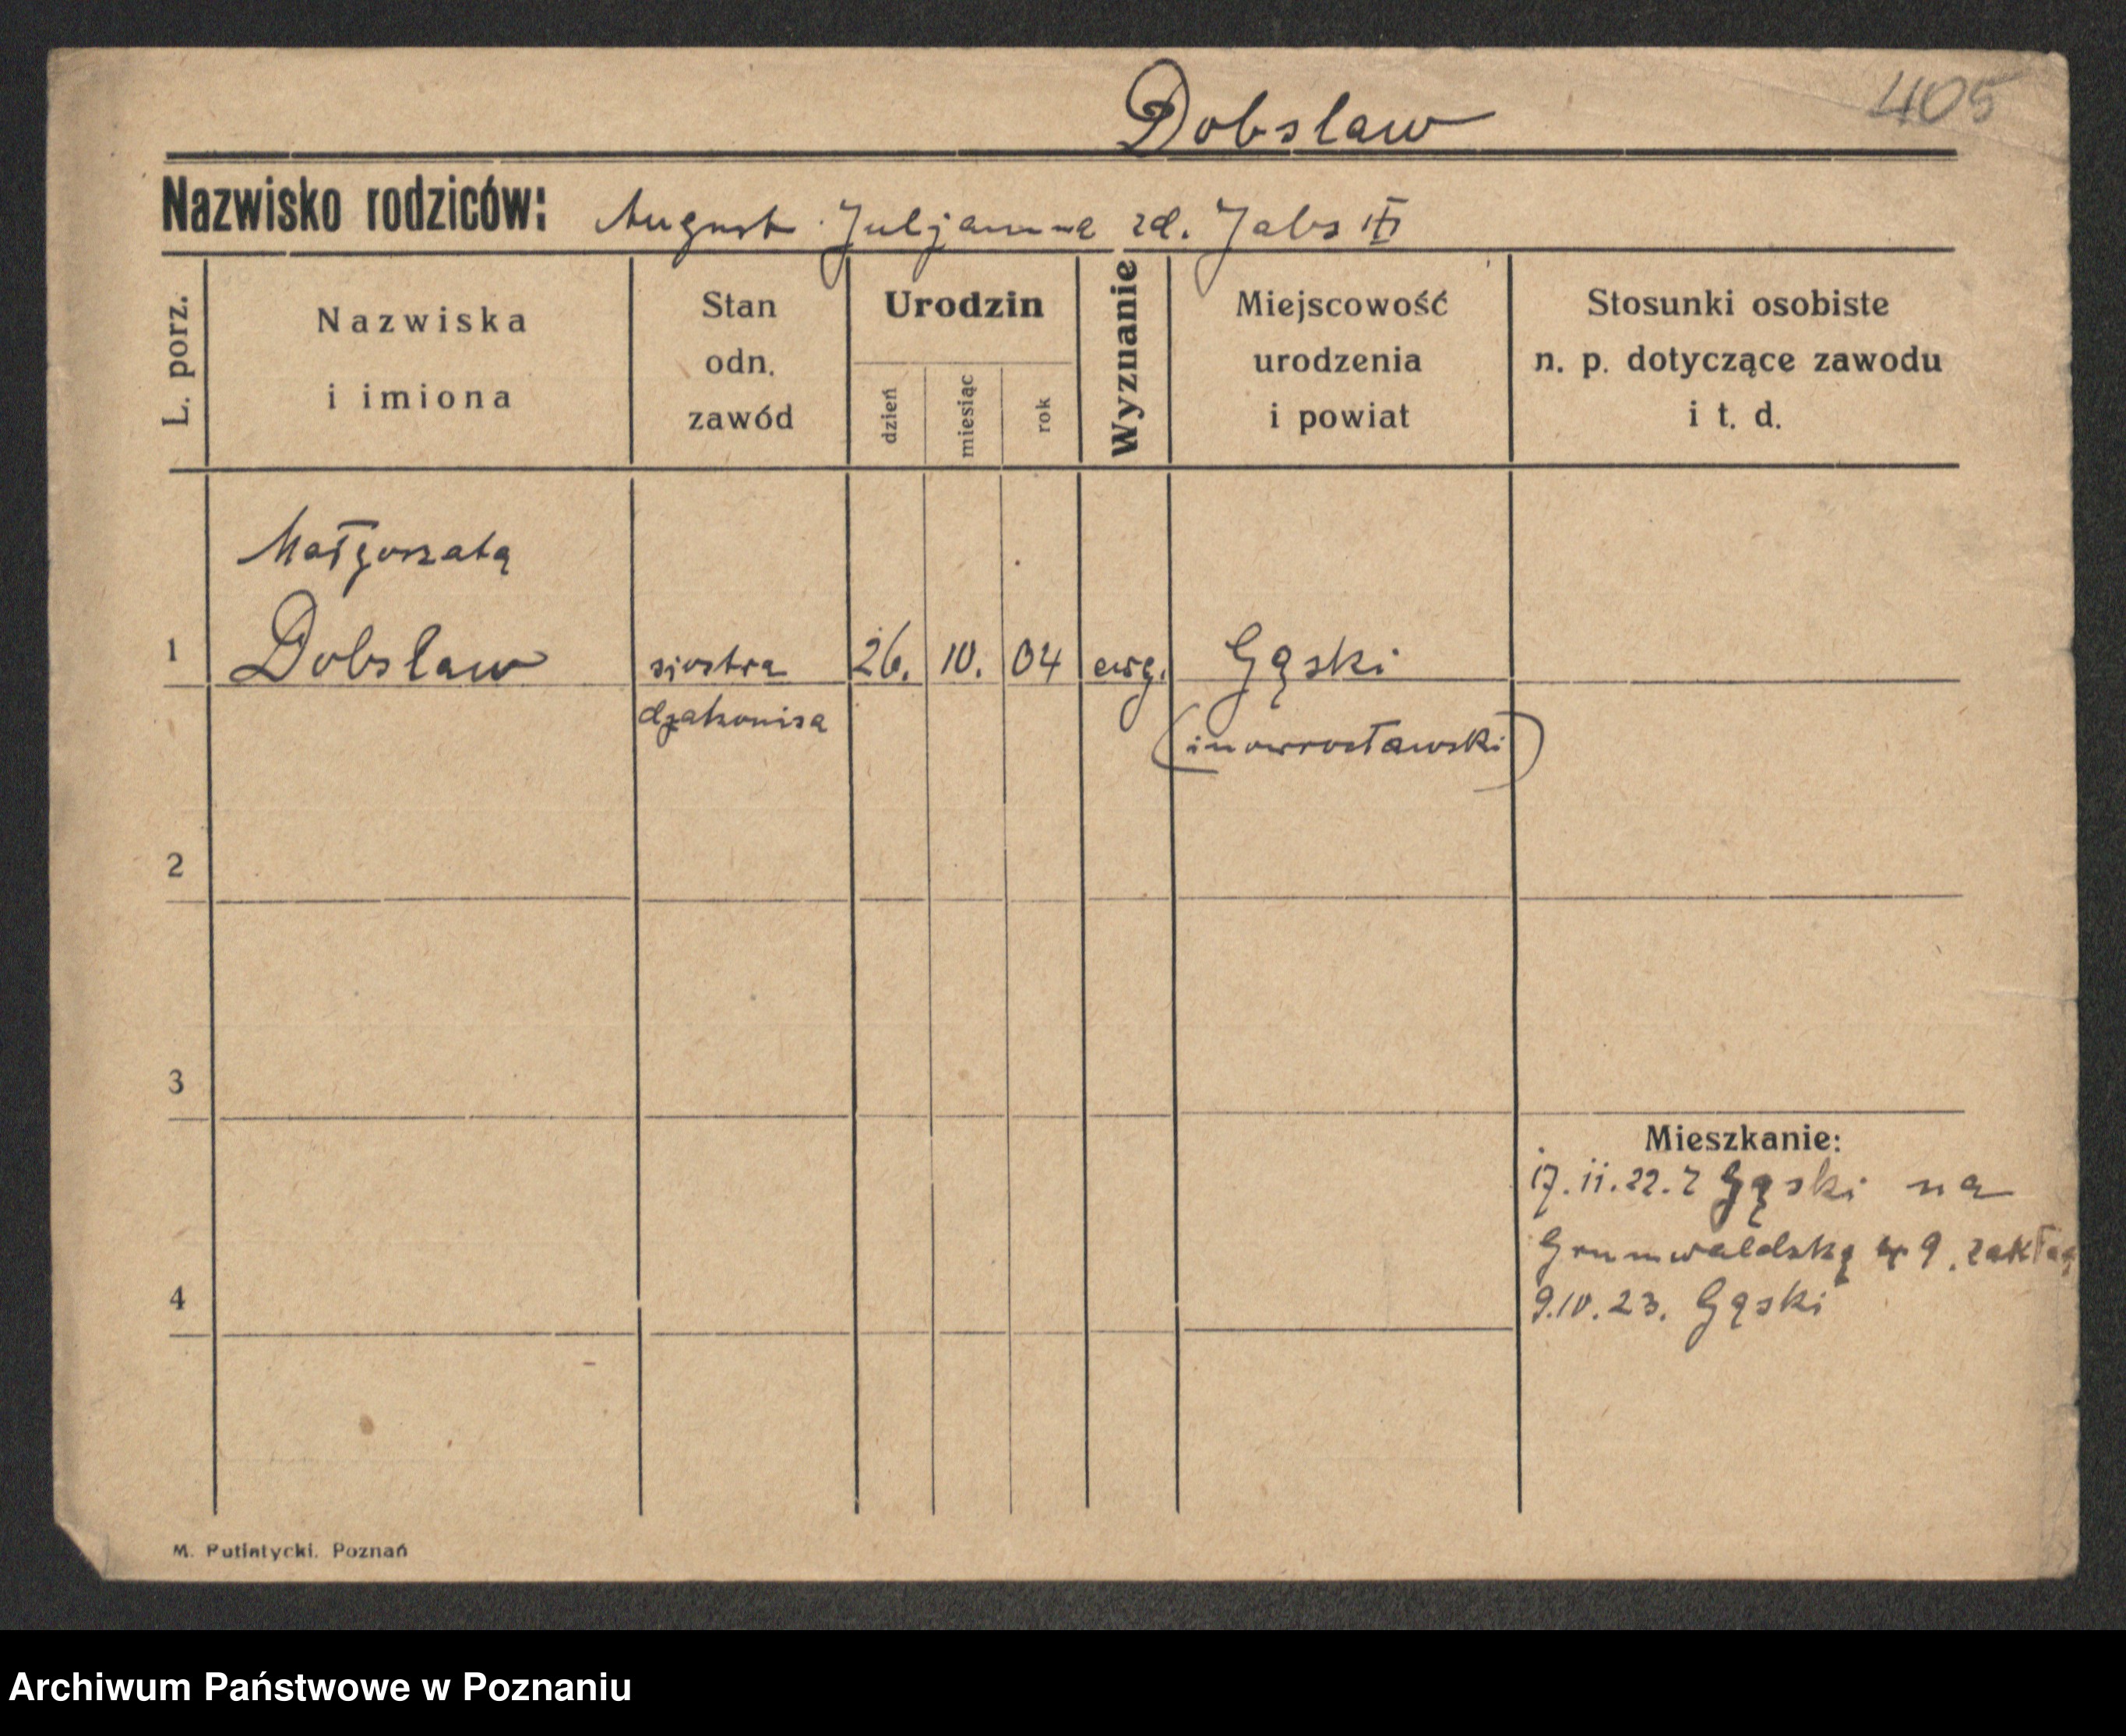 Dobslaw
405
Nazwisko rodziców: August Juljanna zd. Jabs
L. porz.
Nazwiska
i imiona
Stan
odn.
zawód
Urodzin
dzień
miesiąc
rok
Wyznanie
Miejscowość
urodzenia
i powiat
Stosunki osobiste
n. p. dotyczące zawodu
i t. d.
Małgorzata
1 Dobslaw siostra 26. 10. 04 ewg. Gąski
dzakonisa (inowrocławski)
2
3
Mieszkanie:
17.11.22. z Gąski na
Grunwaldską 9. zakład
4
9.10.23. Gąski
M. Putiatycki. Poznań
Archiwum Państwowe w Poznaniu